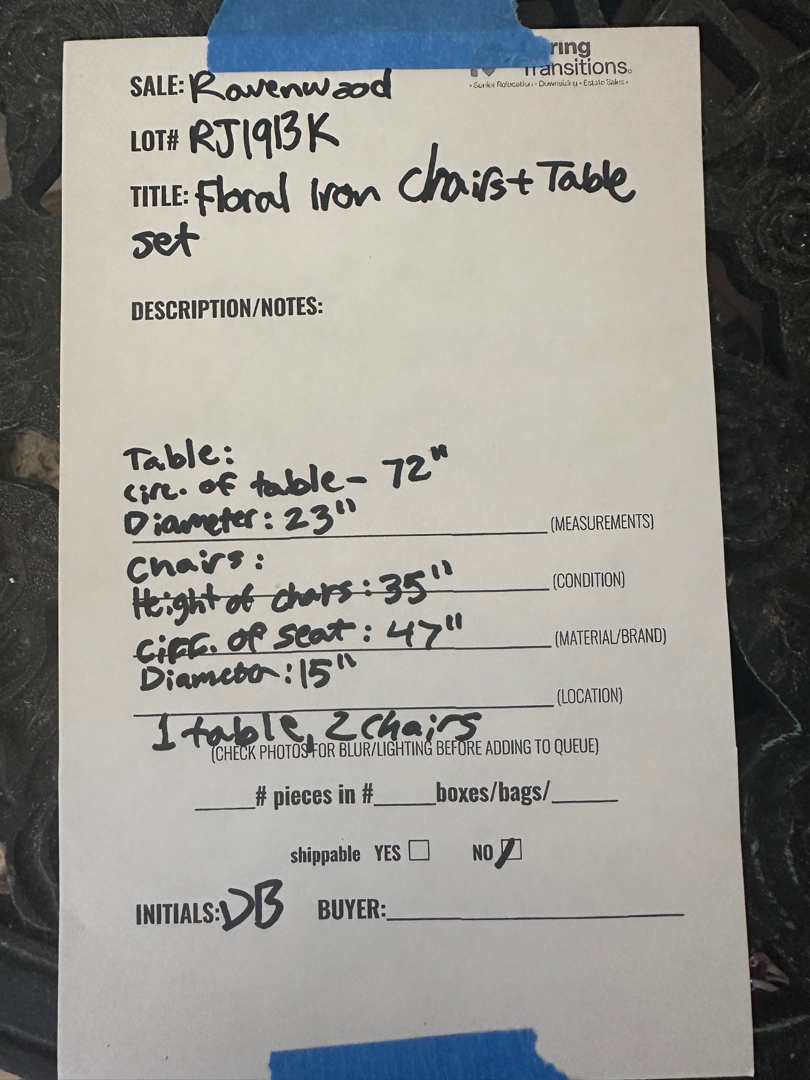 ring
Transitions
• Senior Relocation • Downsizing • Estate Sales •
SALE: Ravenwood
LOT# RJ1913K
TITLE: Floral Iron Chairs + Table
set
DESCRIPTION/NOTES:
Table:
circ. of table - 72"
Diameter: 23"
(MEASUREMENTS)
Chairs:
(CONDITION)
Height of chars: 35"
circ. of seat: 47"
(MATERIAL/BRAND)
Diameter: 15"
(LOCATION)
1 table, 2 chairs
(CHECK PHOTOS FOR BLUR/LIGHTING BEFORE ADDING TO QUEUE)
_____# pieces in #_____boxes/bags/_____
shippable YES ☐ NO ☑
INITIALS: DB BUYER:____________________